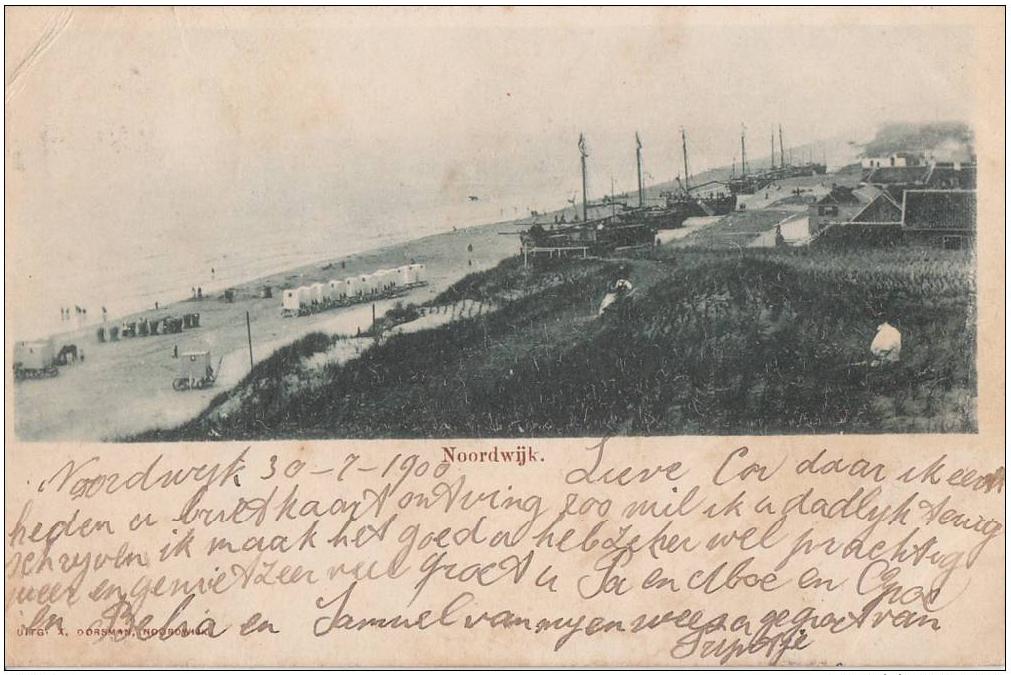 Noordwijk.
Noordwyk 30-7-1900 Lieve Cor daar ik eerst
heden u briefkaart ontving zoo wil ik u dadlyk terug
schryven ik maak het goed u heb zeker wel prachtig
weer en geniet zeer veel Groet u Pa en en
en Samuel van my en wees gegroet van
UITG. X. DORSMAN, NOORDWIJK.